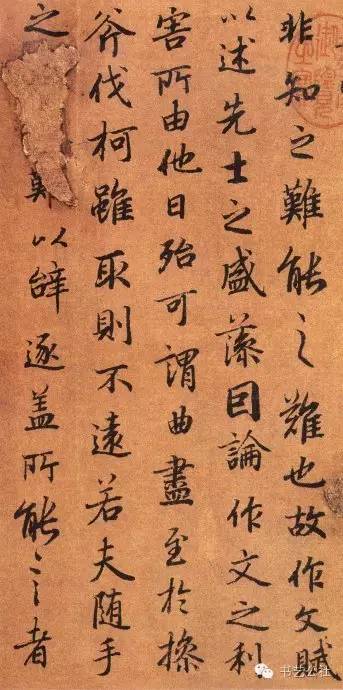 非知之難能之難也故作文賦
以述先士之盛藻因論作文之利
害所由他日殆可謂曲盡至於操
斧伐柯雖取則不遠若夫随手
之難以辞逐盖所能言者
书艺公社